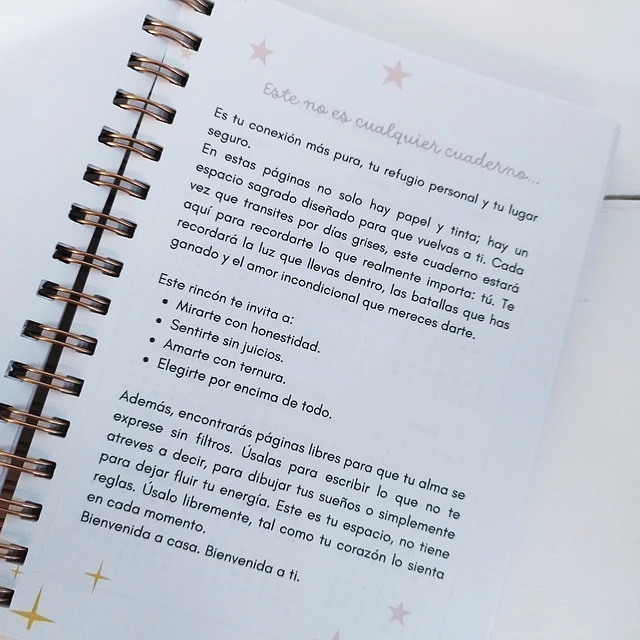 Este no es cualquier cuaderno...
Es tu conexión más pura, tu refugio personal y tu lugar
seguro.
En estas páginas no solo hay papel y tinta; hay un
espacio sagrado diseñado para que vuelvas a ti. Cada
vez que transites por días grises, este cuaderno estará
aquí para recordarte lo que realmente importa: tú. Te
recordará la luz que llevas dentro, las batallas que has
ganado y el amor incondicional que mereces darte.
Este rincón te invita a:
• Mirarte con honestidad.
• Sentirte sin juicios.
• Amarte con ternura.
• Elegirte por encima de todo.
Además, encontrarás páginas libres para que tu alma se
exprese sin filtros. Úsalas para escribir lo que no te
atreves a decir, para dibujar tus sueños o simplemente
para dejar fluir tu energía. Este es tu espacio, no tiene
reglas. Úsalo libremente, tal como tu corazón lo sienta
en cada momento.
Bienvenida a casa. Bienvenida a ti.